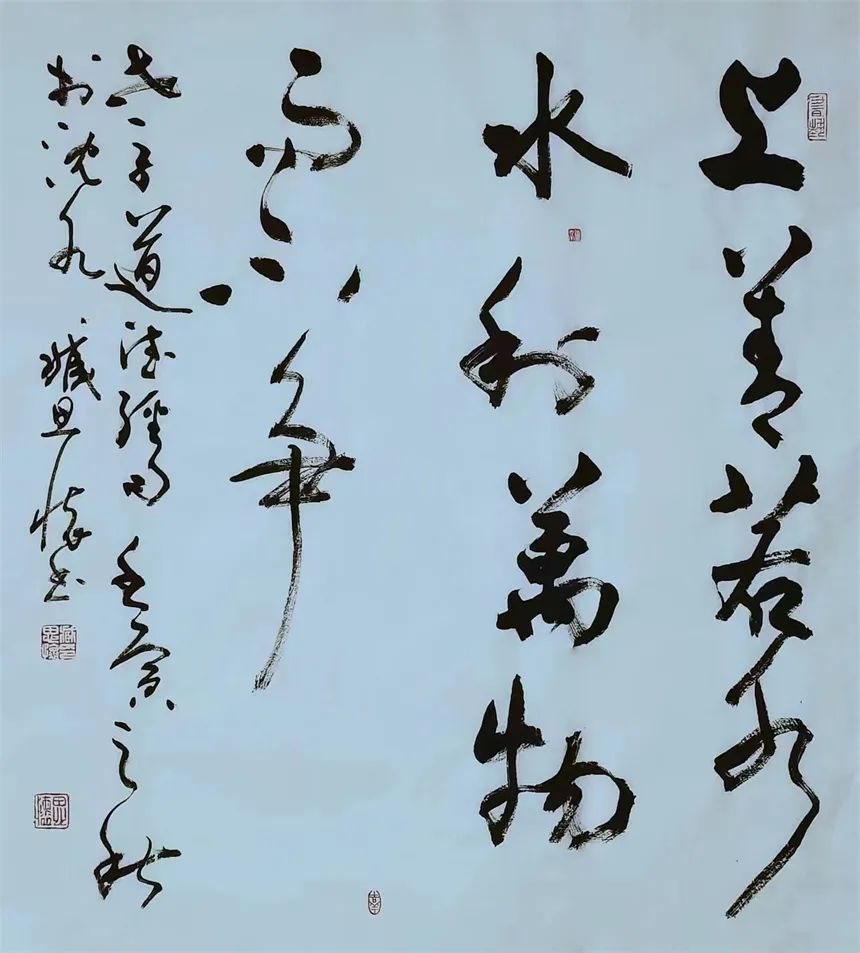 上善若水
水利萬物
而不争
老子道德經句 壬寅之秋
於沈水 臧思懷书